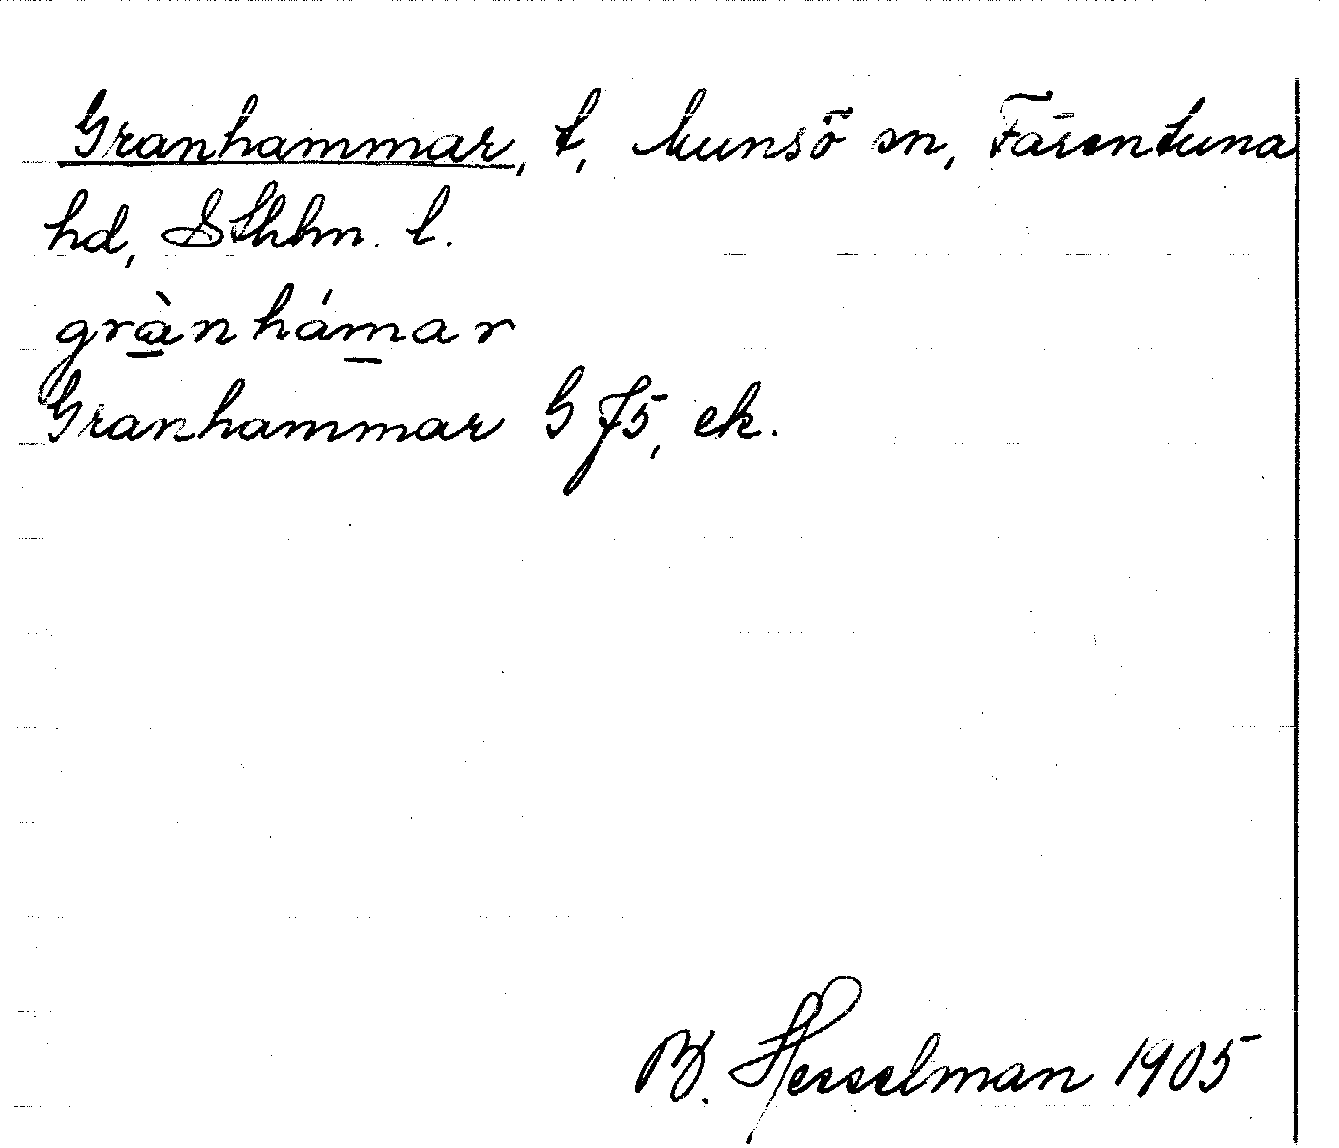 Granhammar, t, Munsö sn, Färentuna
hd, Sthlm. l.
grànhámar
Granhammar G 75, ek.
B. Hesselman 1905